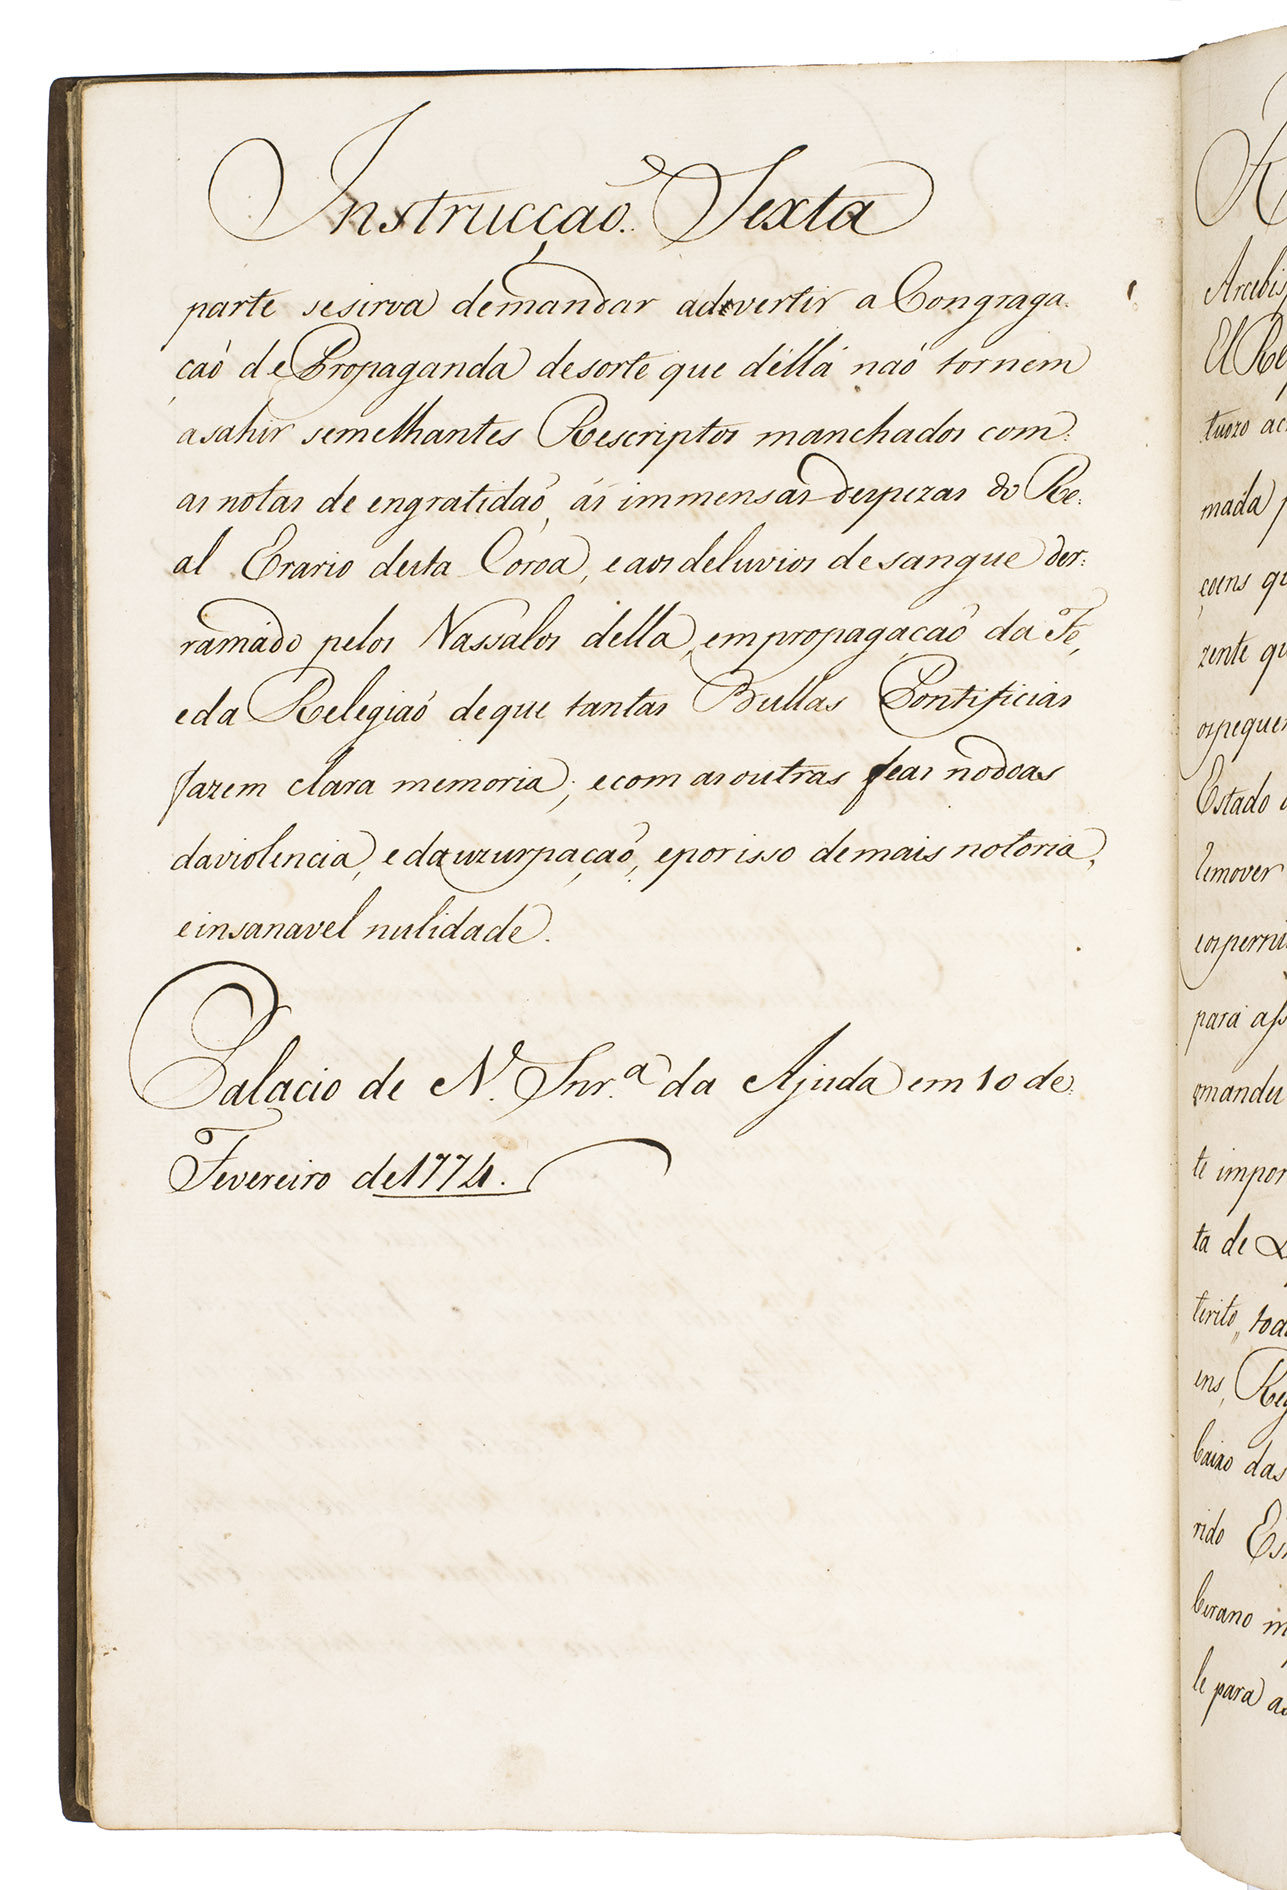 Instrucçaõ. Sexta
parte sesirva demandar adevertir a Congraga:
çaõ de Propaganda desorte que délla naõ tornem
asahir semelhantes Rescriptos manchados com:
as notas de engratidaõ, ás immensas despezas do Re:
al Erario desta Coroa, eaos deluvios de sangue der:
ramado pelos Vassalos della, empropagaçaõ da Fe,
eda Relegiaõ deque tantas Bullas Pontificias
fazem clara memoria; ecom as outras feas nodoas
daviolencia, eda uzurpaçaõ, eporisso demais notoria,
einsanavel nulidade.
Palacio de N. Snr.ª da Ajuda em 10 de:
Fevereiro de 1774.
Arcebis
El Re
tuozo ac
mada
çoens qu
zente qu
ospeque
Estado
remover
eosperni
para ass
omandu
te impor
ta de
terito,, toa
ens, Reg
baixo das
rido Es
berano in
le para ao